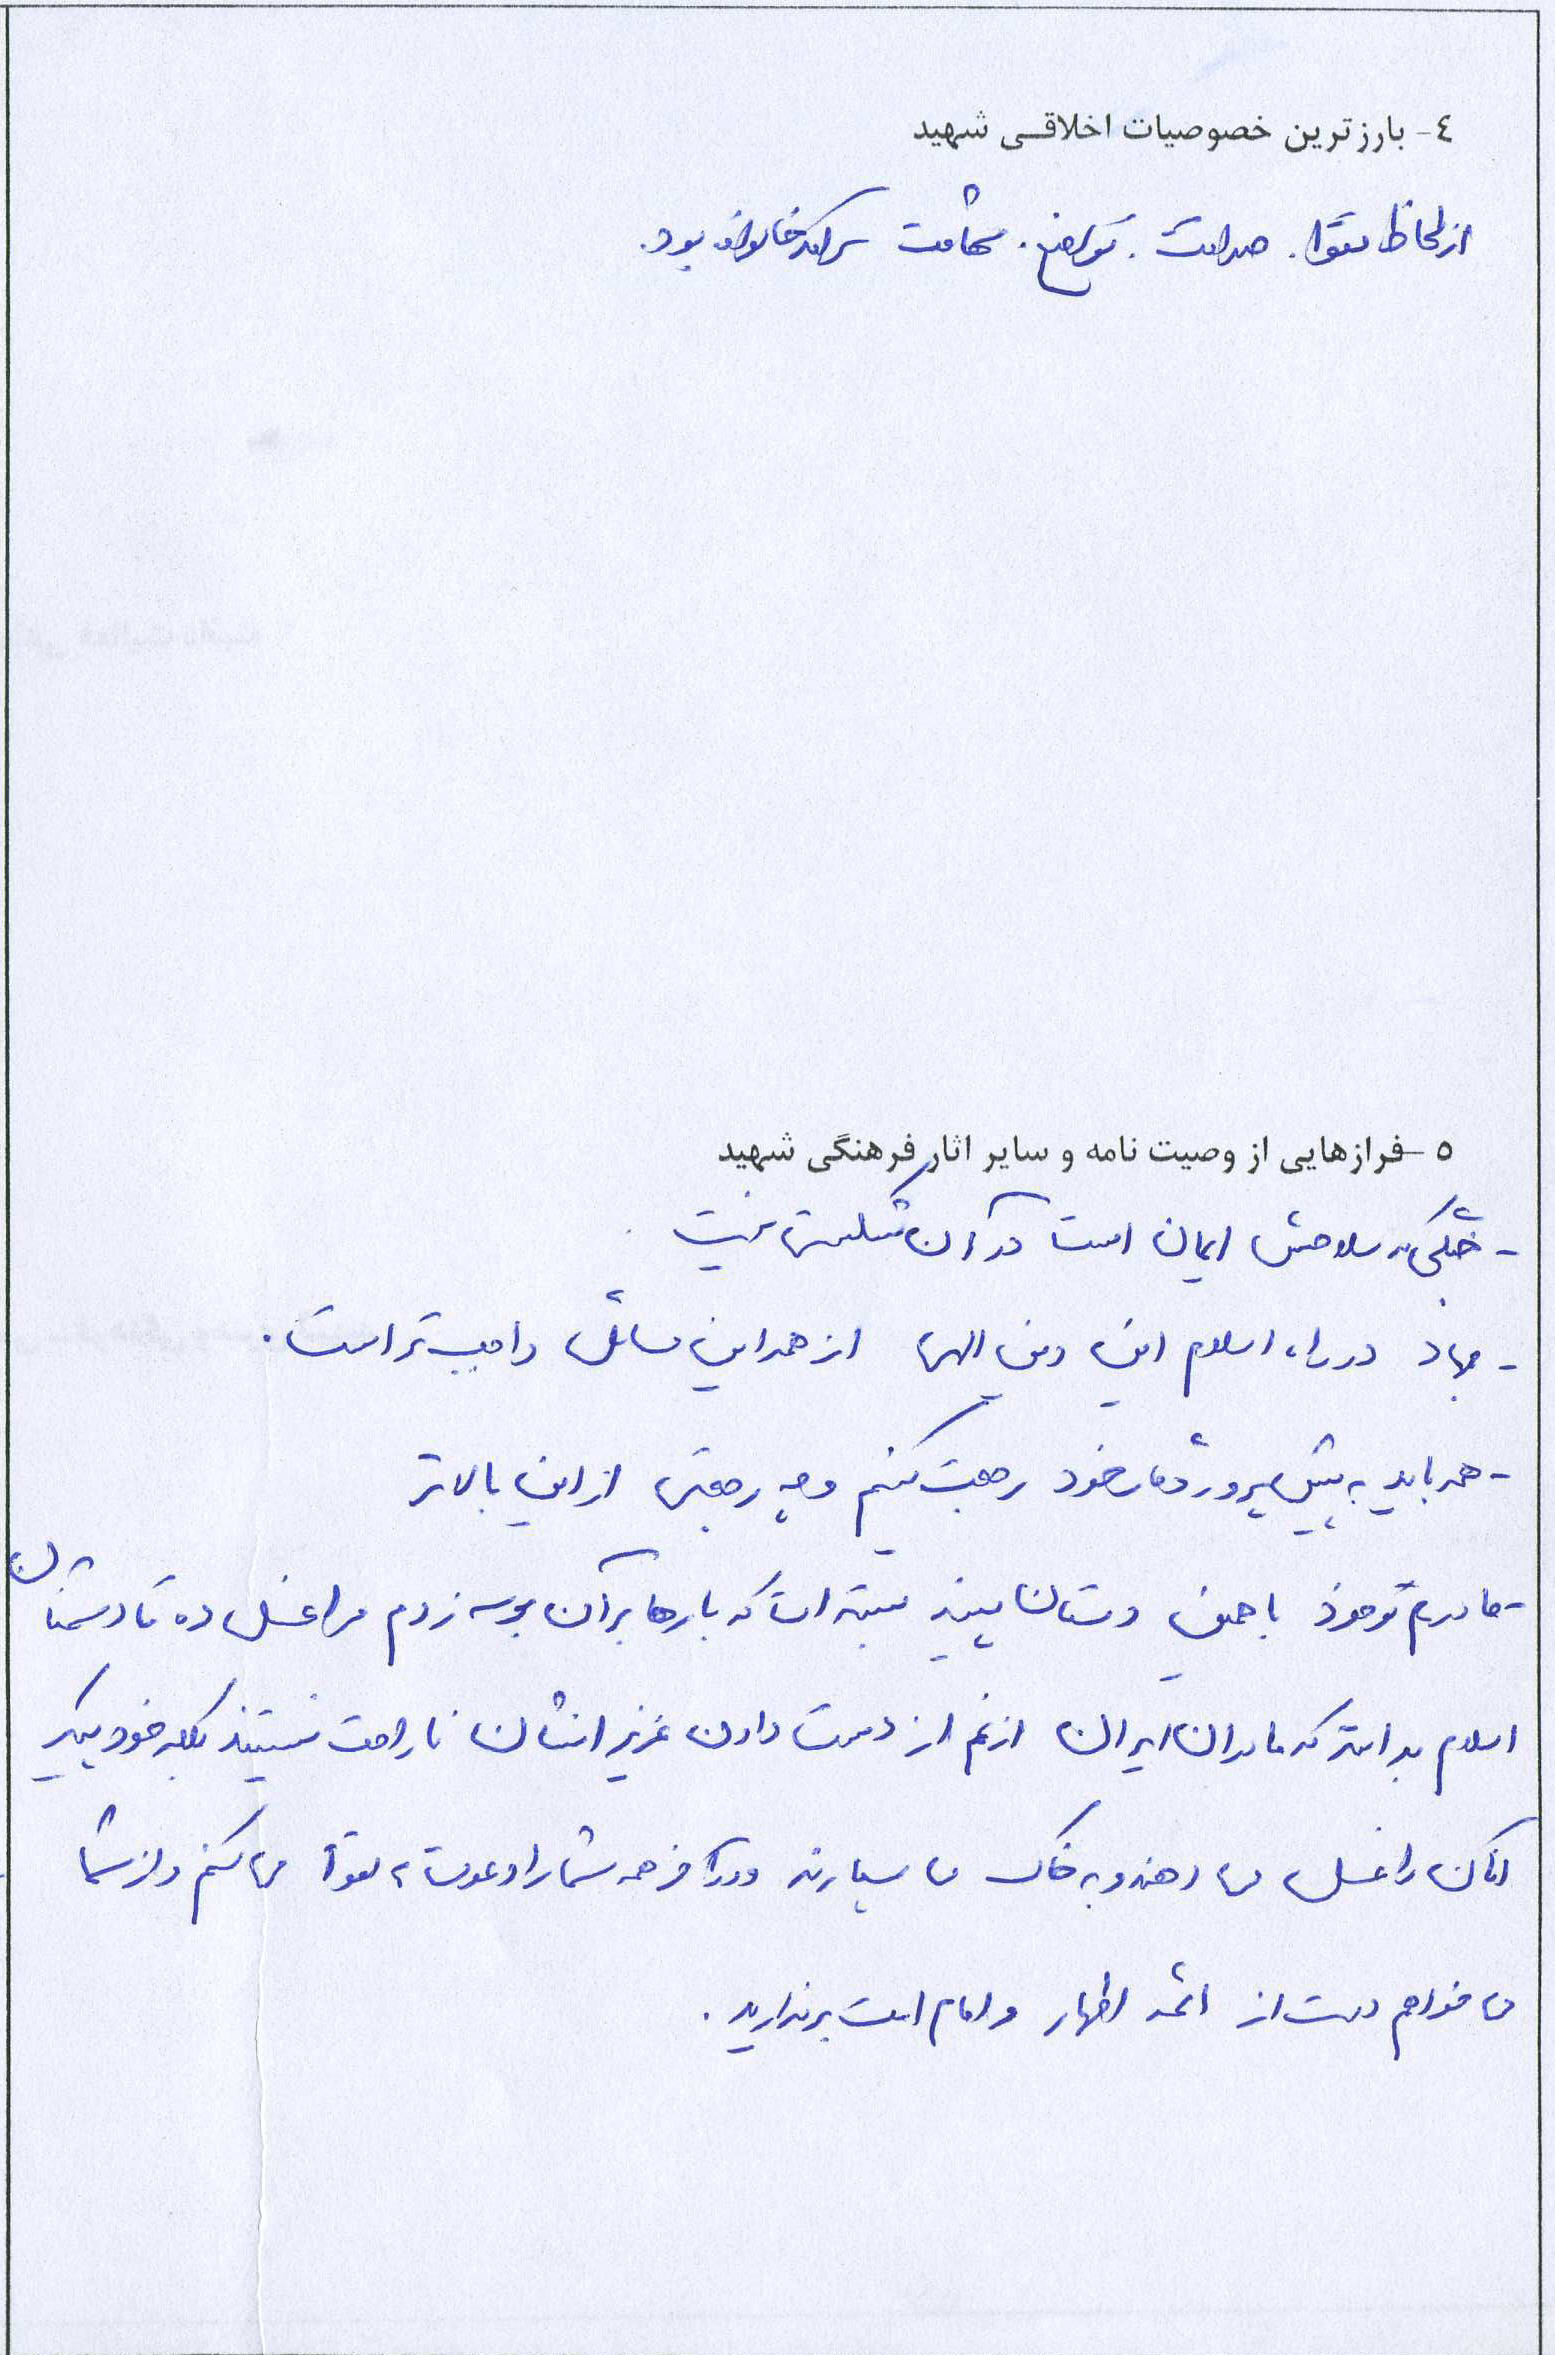 ٤- بارزترین خصوصیات اخلاقی شهید
از لحاظ تقوا. صداقت. تواضع. شجاعت سرآمد خانواده بود.
٥- فرازهایی از وصیت نامه و سایر اثار فرهنگی شهید
- جنگی که سلاحش ایمان است در آن شکستی نیست
- جهاد در راه اسلام این دین الهی از همه این مسائل واجب تر است.
- همه باید به پیش پروردگار خود رجعت کنیم و چه رجعتی از این بالاتر
- مادرم تو خود با همین دستان پینه بسته ات که بارها بر آن بوسه زدم مرا غسل ده تا دشمنان
اسلام بدانند که مادران ایران از غم از دست دادن عزیزانشان ناراحت نیستند بلکه خود پیکر
آنان را غسل می دهند و به خاک می سپارند و در آخر همه شما را دعوت به تقوا می کنم و از شما
می خواهم دست از ائمه اطهار و امام امت برندارید.